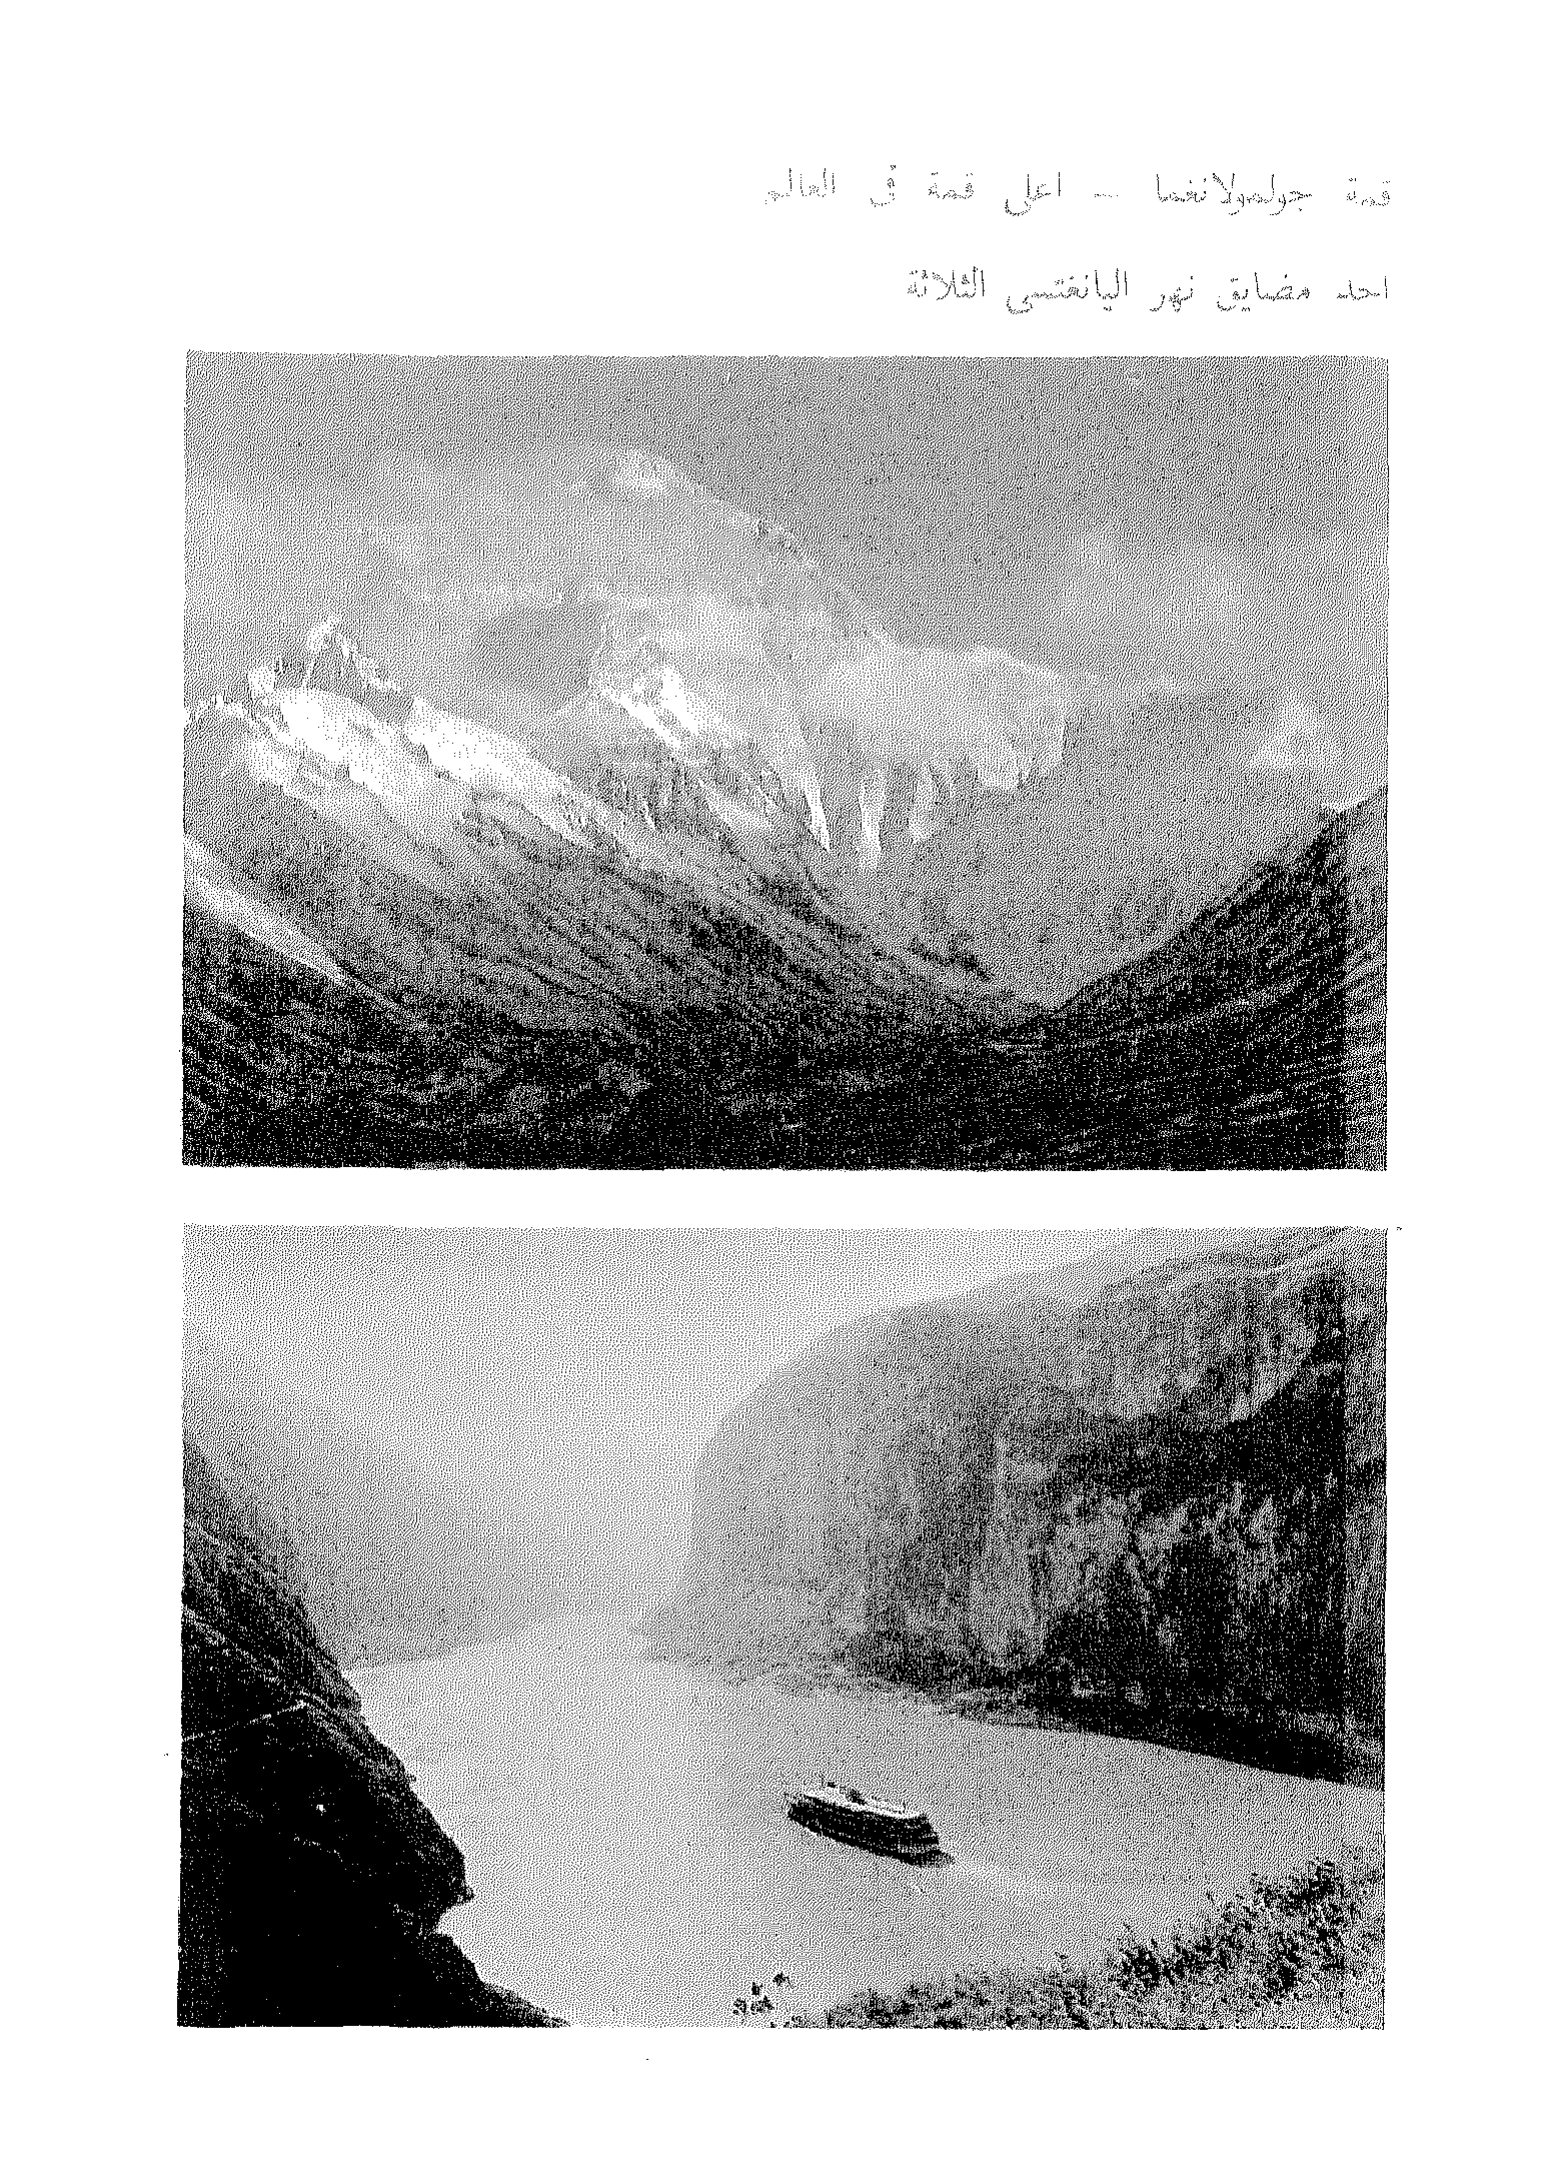 قمة جولمولانغما – اعلى قمة فى العالم
احد مضايق نهر اليانغتسى الثلاثة